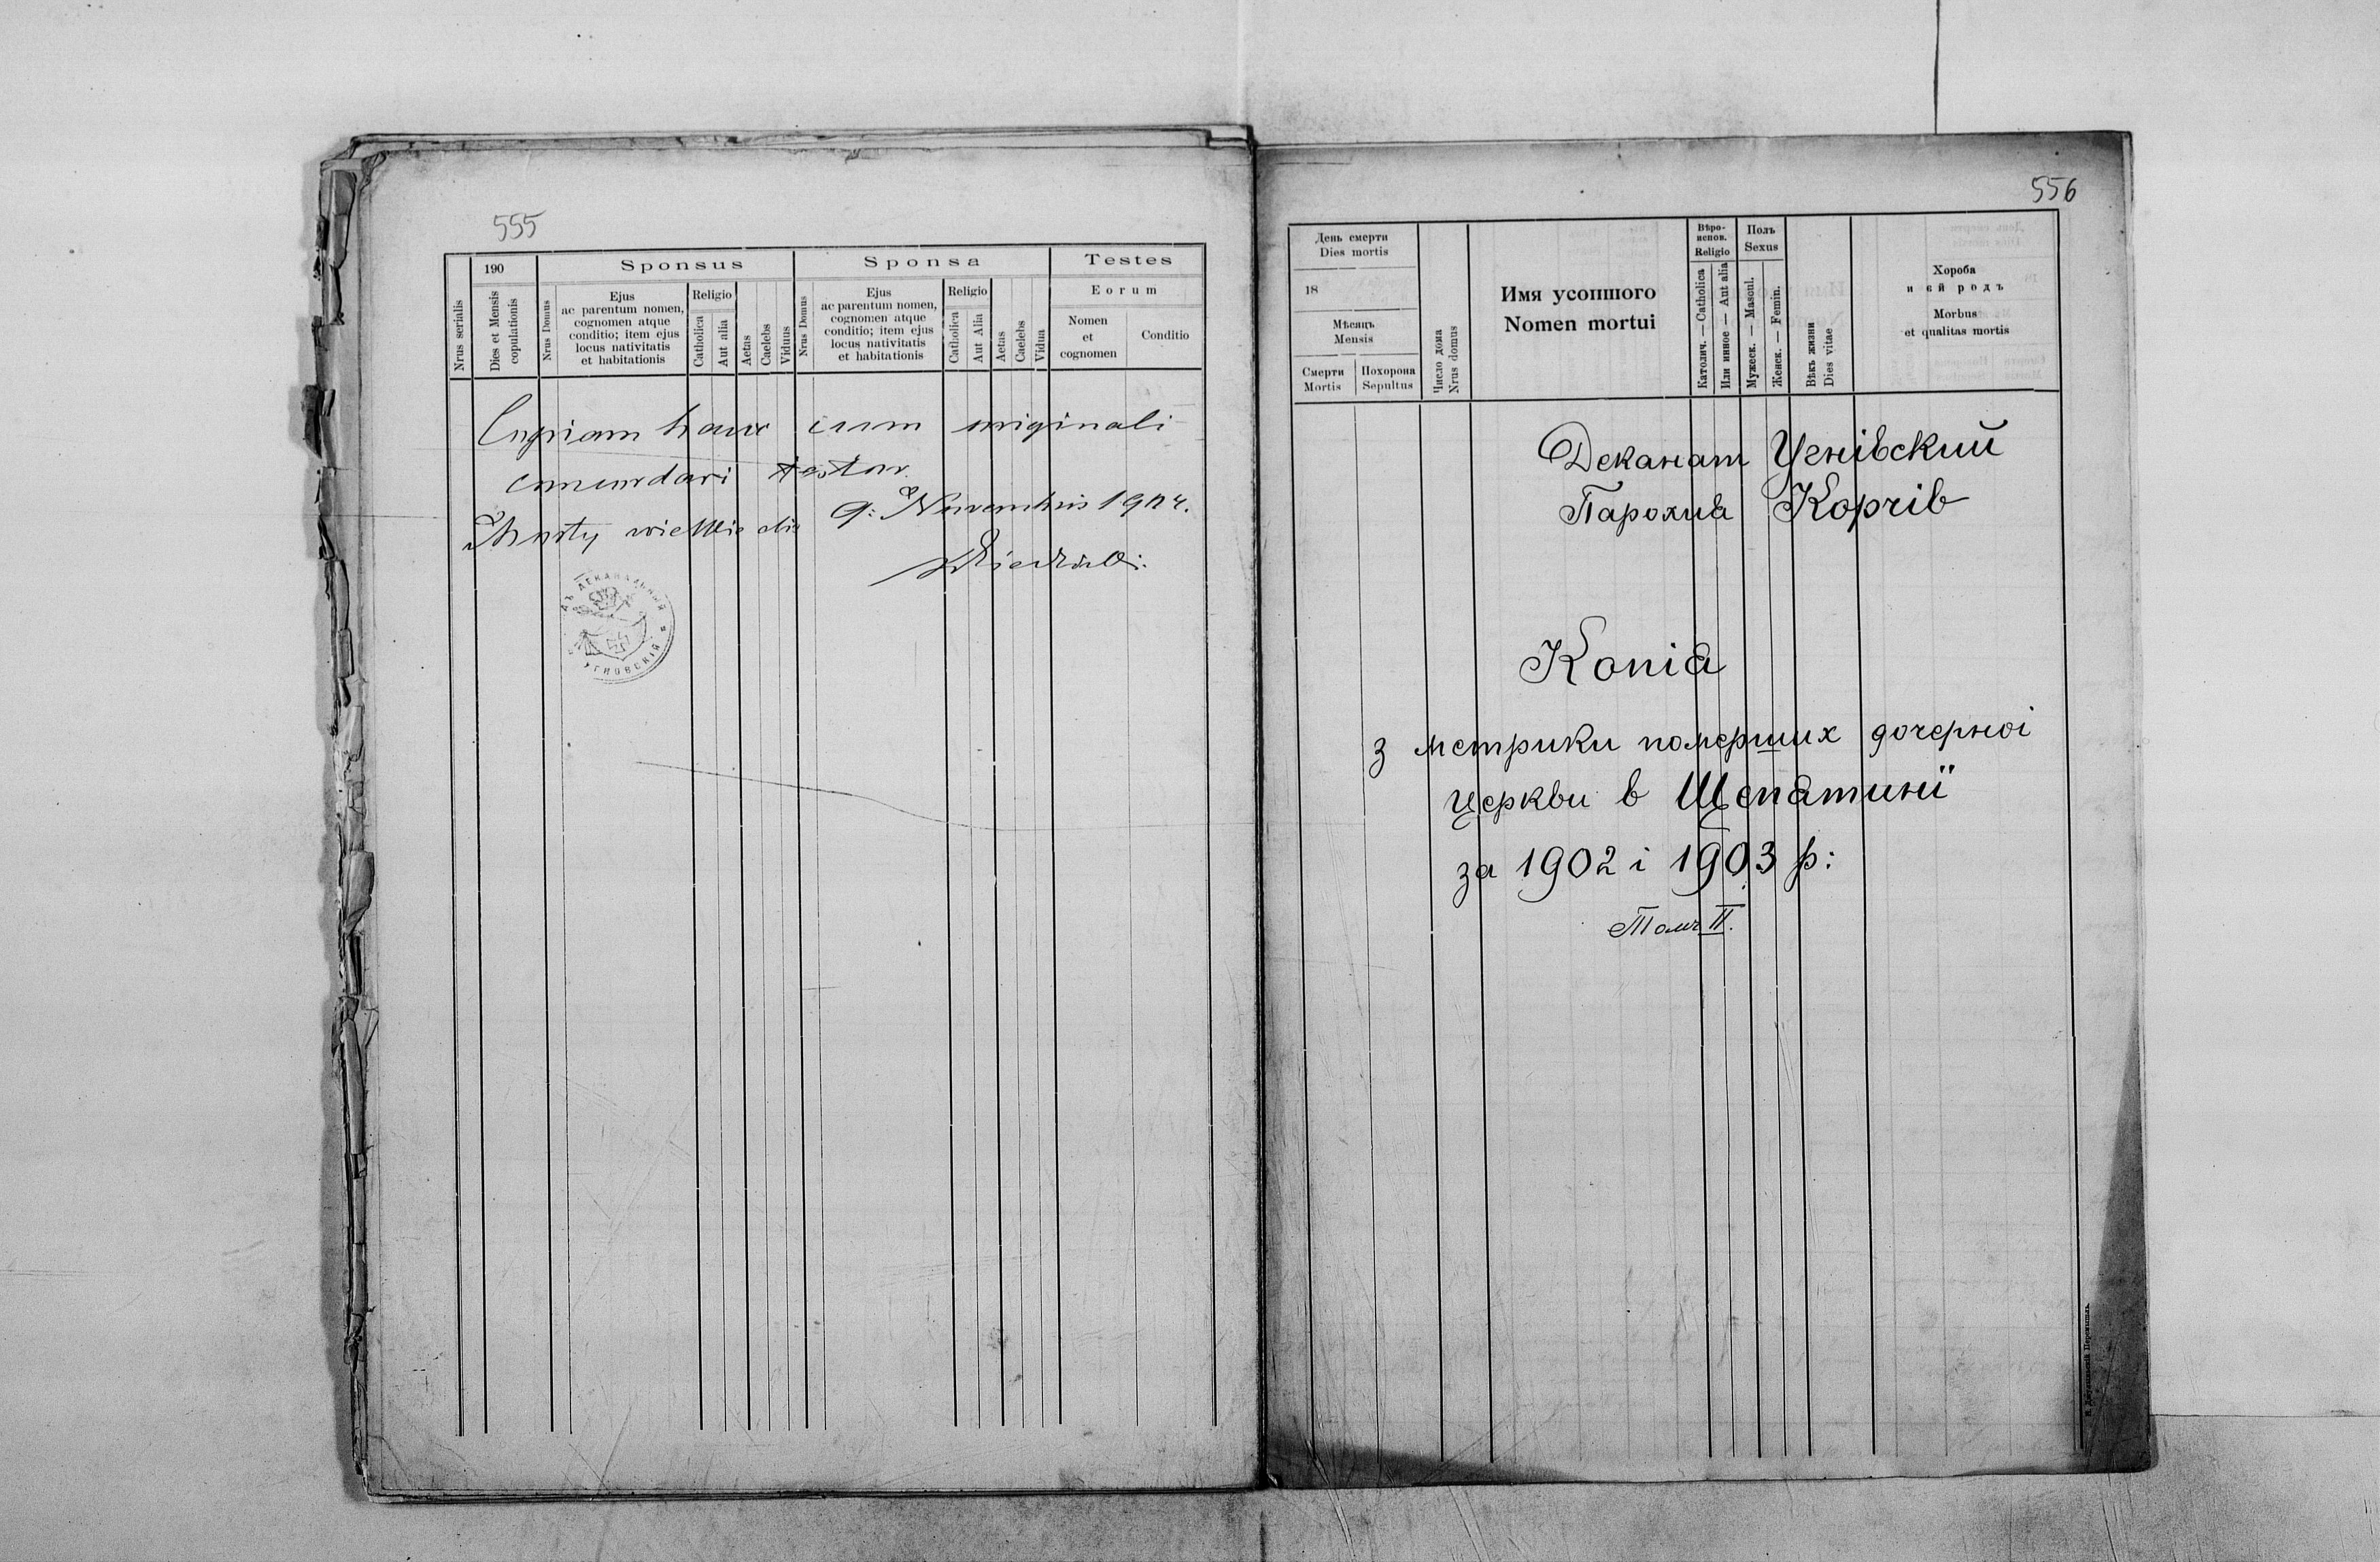 555
190
Sponsus
Sponsa
Testes
Nrus serialis
Dies et Mensis copulationis
Nrus Domus
Ejus
ac parentum nomen,
cognomen atque
conditio; item ejus
locus nativitatis
et habitationis
Religio
Catholica
Aut alia
Aetas
Caelebs
Viduus
Nrus Domus
Ejus
ac parentum nomen,
cognomen atque
conditio; item ejus
locus nativitatis
et habitationis
Religio
Catholica
Aut Alia
Aetas
Caelebs
Vidua
Eorum
Nomen
et
cognomen
Conditio
Copiam hanc cum originali
concordari testor
wielkie die 9: Novembris 1904.
ДЕКАНАЛЬНЫЙ
УГНОВСКІЙ
556
День смерти
Dies mortis
18
Мѣсяцъ
Mensis
Смерти
Mortis
Похорона
Sepultus
Число дома
Nrus domus
Имя усопшого
Nomen mortui
Вѣро-
испов.
Religio
Католич. — Catholica
Или инное — Aut alia
Полъ
Sexus
Мужеск. — Mascul.
Женск. — Femin.
Вѣкъ жизни
Dies vitae
Хороба
и єй родъ
Morbus
et qualitas mortis
Деканат Угнівский
Парохия Корчів
Копія
з метрики померших дочерної
церкви в Щепятинї
за 1902 і 1903 р:
Томъ II.